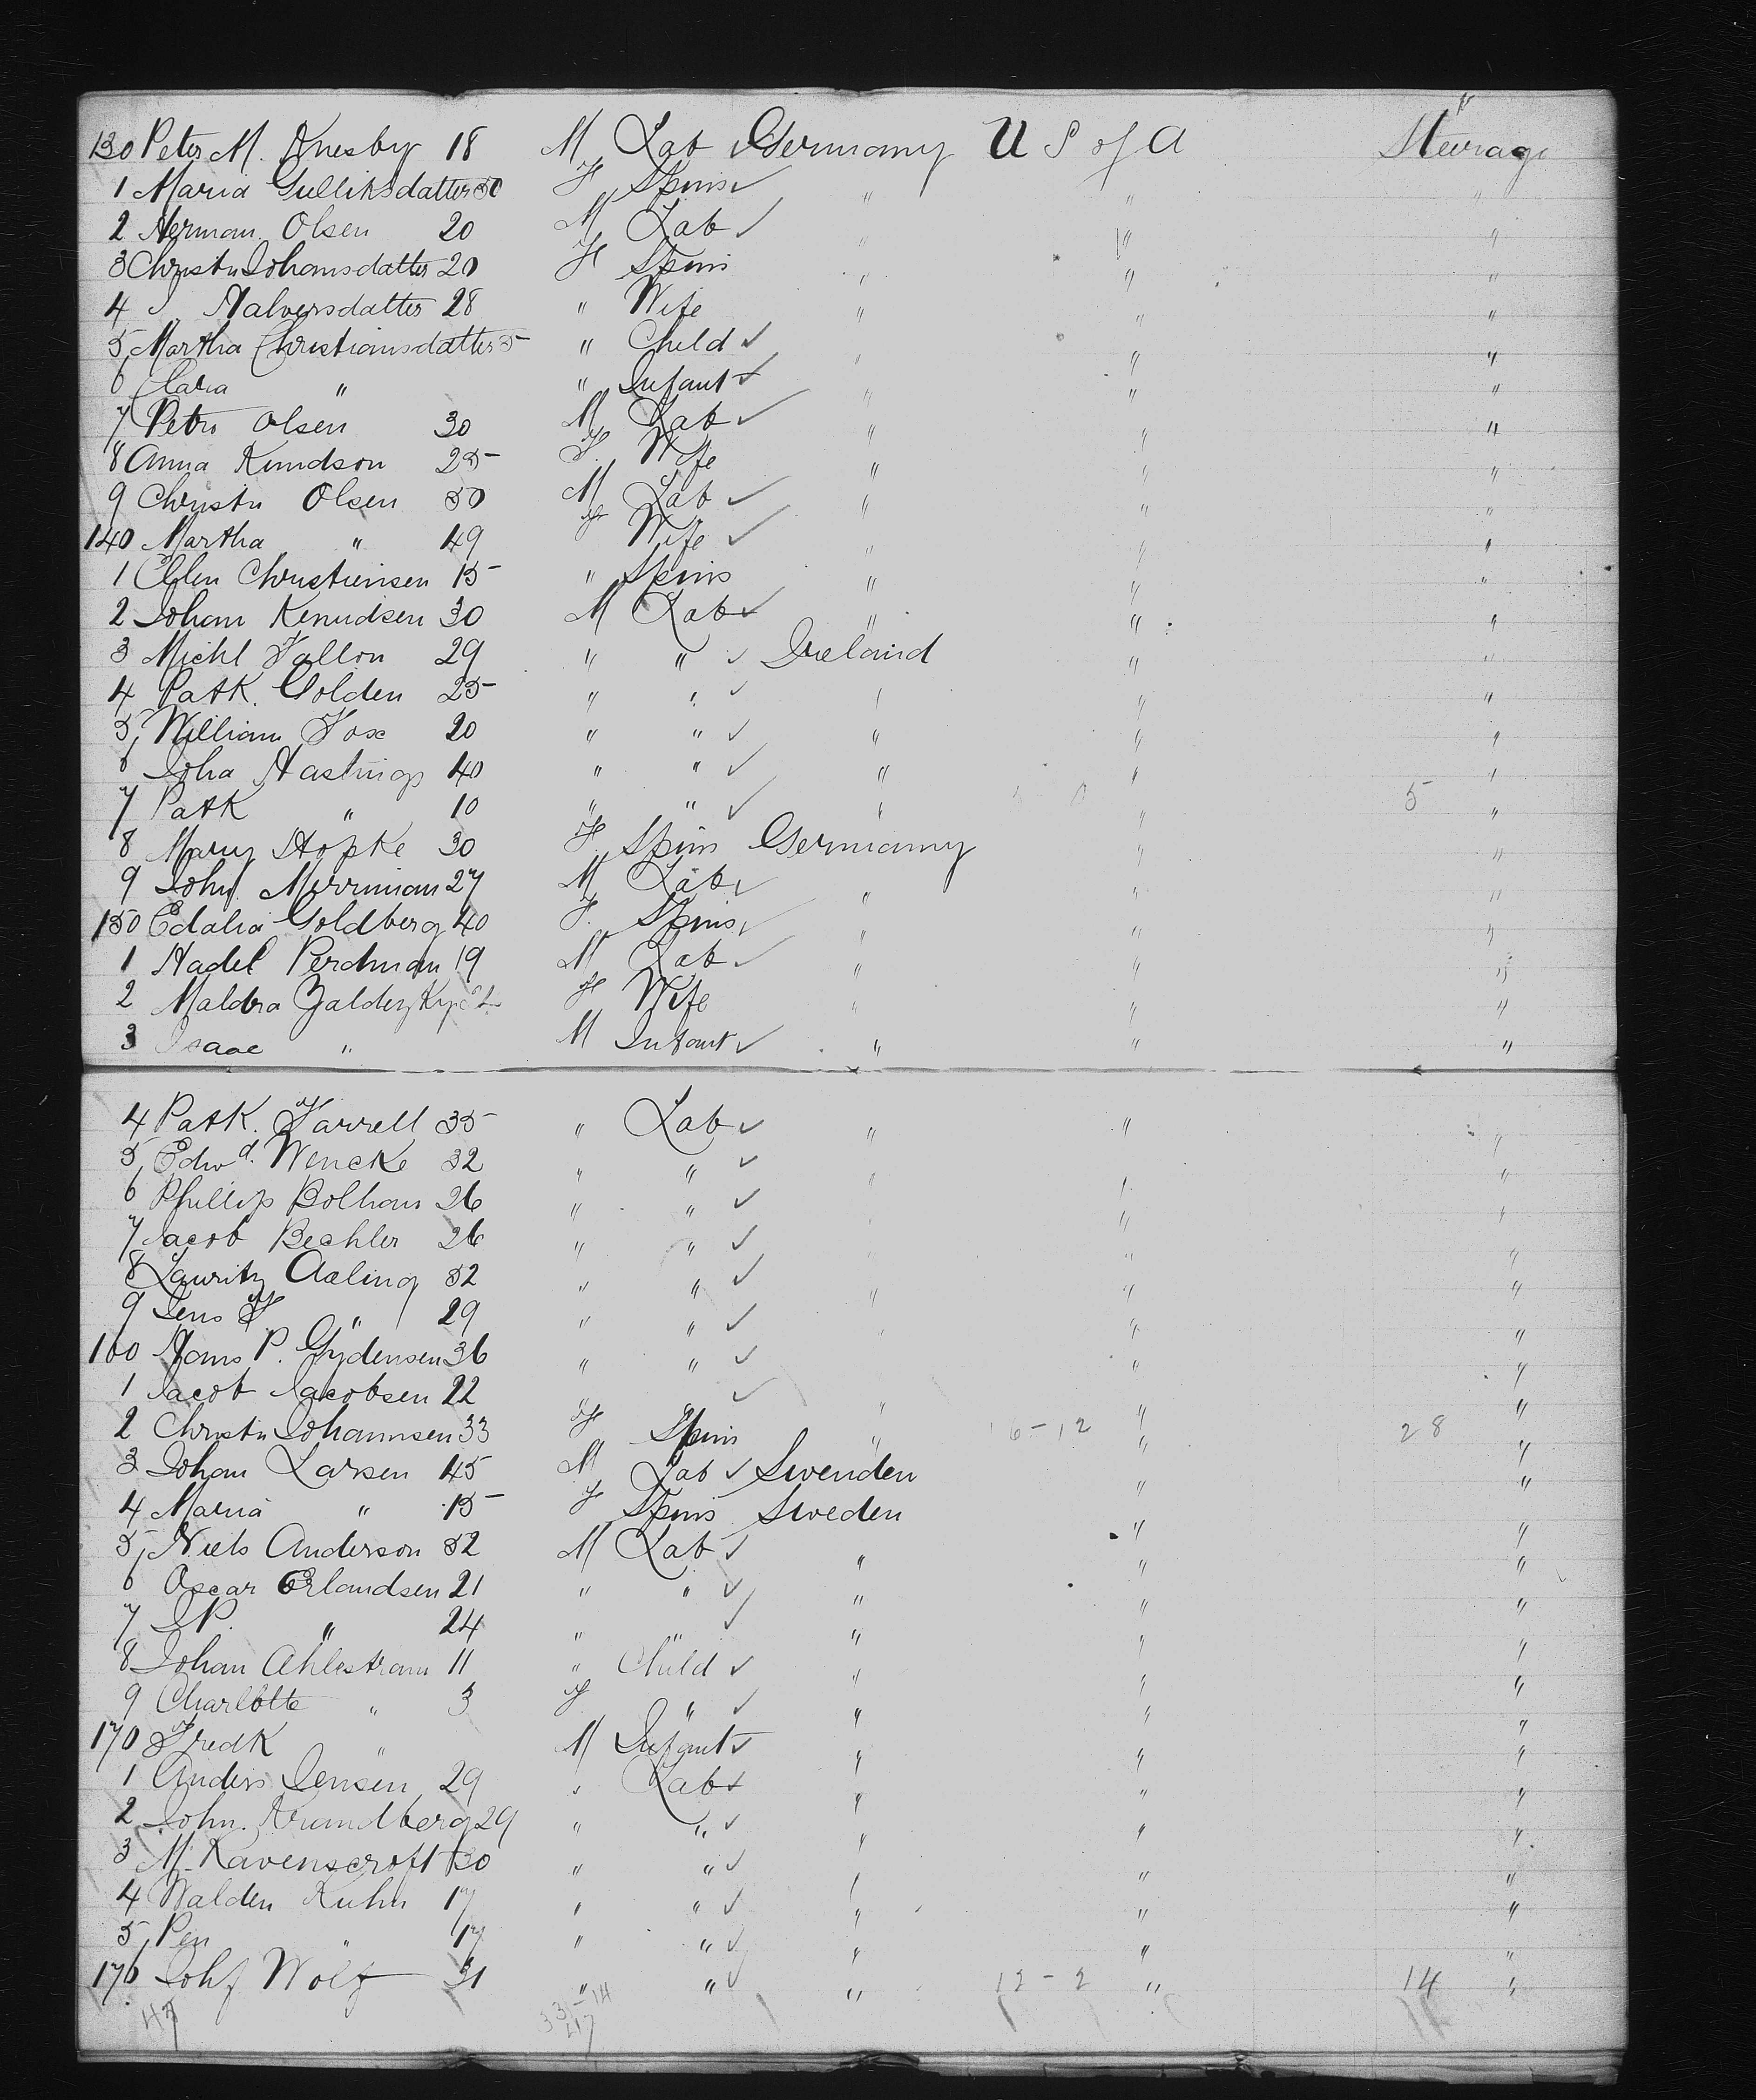 130 Peter M. Knesby 18 M Lab ✓ Germany U S of A Steerage
1 Maria Gulliksdatter 50 F Spins ✓ " " "
2 Herman Olsen 20 M Lab ✓ " " "
3 Christn Johansdatter 20 F Spins " " "
4 " Halversdatter 28 " Wife " " "
5 Martha Christiansdatter 5 " Child ✓ " " "
6 Clara " " Infant ✓ " " "
7 Petri Olsen 30 M Lab ✓ " " "
8 Anna Knudson 25 F. Wife " " "
9 Christn Olsen 50 M Lab ✓ " " "
140 Martha " 49 F Wife ✓ " " "
1 Ellen Christiensen 15 " Spins " " "
2 Johan Knudsen 30 M Lab ✓ " " "
3 Michl Fallon 29 " " ✓ Ireland " "
4 Patk. Golden 25 " " ✓ " " "
5 William Fox 20 " " ✓ " " "
6 John Hastings 40 " " ✓ " " "
7 Patk " 10 " " ✓ " " 5 "
8 Mary Hopke 30 F. Spins Germany " "
9 John Merriman 27 M Lab ✓ " " "
150 Edalia Goldberg 40 F. Spins ✓ " " "
1 Hadel Perdman 19 M Lab ✓ " " "
2 Maldra F Wife " " "
3 Isaac " M Infant ✓ " " "
4 Patk. Farrell 35 " Lab ✓ " " "
5 Edwd. Wencke 32 " " ✓ " " "
6 Phillip Bolhan 26 " " ✓ " "
7 Jacob Bechler 26 " " ✓ " " "
8 Lauritz Aaling 52 " " ✓ " " "
9 Jens F " 29 " " ✓ " " "
160 Hans P. Gydensen 36 " " ✓ " "
1 Jacob Jacobsen 22 ✓ " " "
2 Christn Johannsen 33 F Spins " 16-12 " 28 "
3 Johan Larsen 45 M Lab ✓ Swenden " "
4 Maria " 15 F Spins Sweden " "
5 Niels Anderson 52 M Lab ✓ " " "
6 Oscar Erlandsen 21 " " ✓ " " "
7 J P. " 24 " " ✓ " " "
8 Johan Ahlestram 11 " Child ✓ " " "
9 Charlotte " 3 F " ✓ " " "
170 Fredk " M Infant ✓ " " "
1 Anders Jensen 29 " Lab ✓ " " "
2 John. Krundberg 29 " " ✓ " " "
3 M. Ravenscroft 30 " " ✓ " " "
4 Walden Kuhn 17 " " ✓ " " "
5 Pen " 17 " " ✓ " " "
176 Johf Wolf 31 " " ✓ " 12-2 " 14 "
47 33-14
47